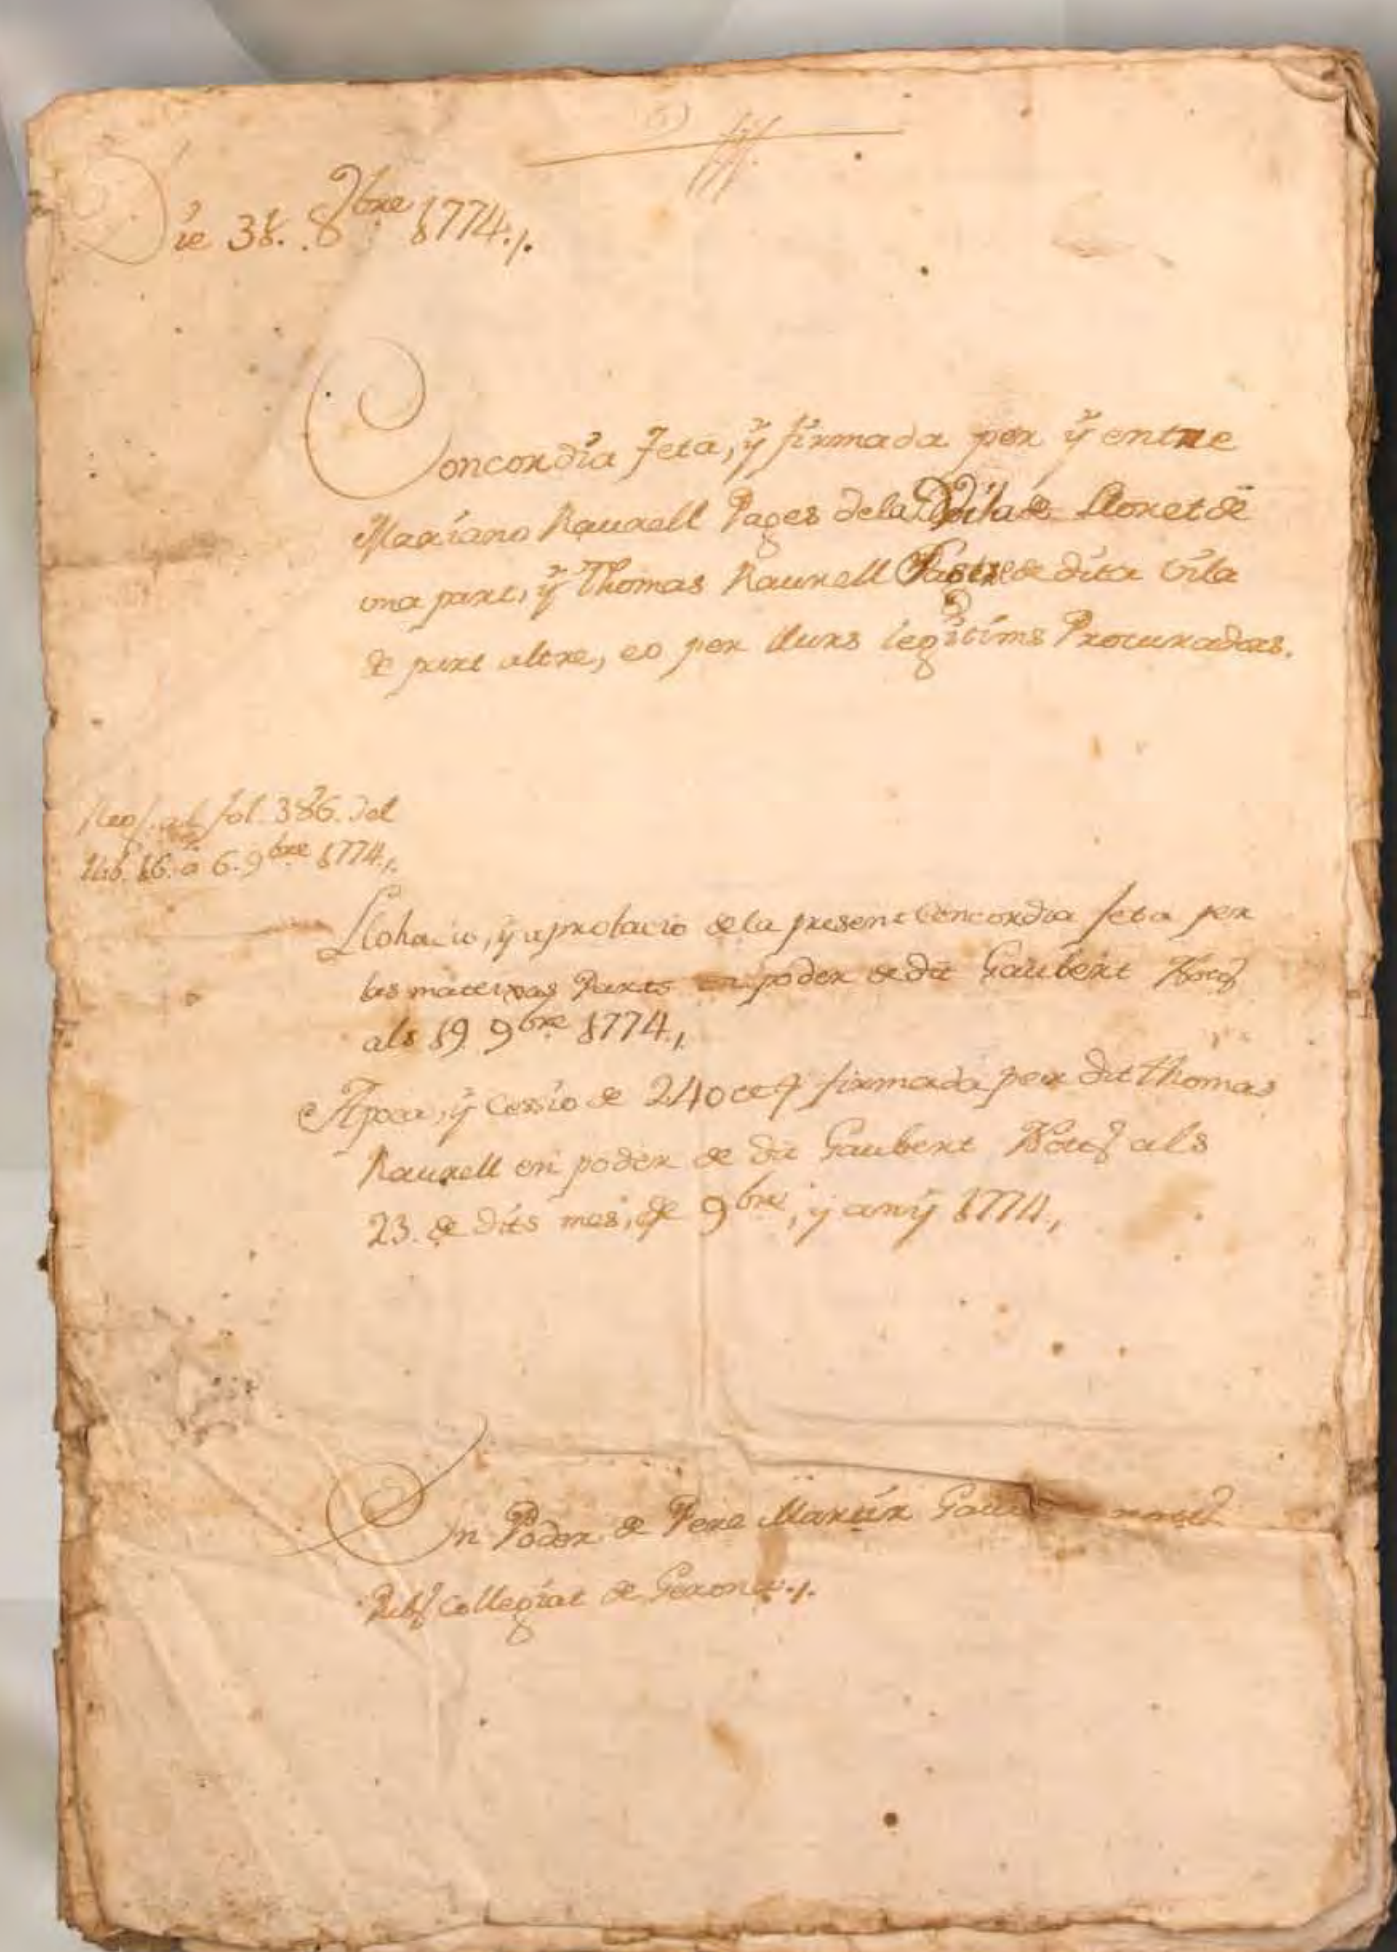 Die 31. 8bre 1774.
Concordia feta, ÿ firmada per ÿ entre
Mariano Rauxell Pages de la Vila de Lloret de
una part, ÿ Thomas Rauxell de dita Vila
de part altre, eo per llurs legitims Procuradors.
Reg. al fol. 386. del
llib. 16. a 6. 9bre 1774.
Llohacio, ÿ aprobacio de la present Concordia feta per
las mateixas Parts en poder de dit Gaubert Not.
als 19 9bre 1774,
Apoca, ÿ Cessio de 240 firmada per dit Thomas
Rauxell en poder de dit Gaubert Not. als
23. de dits mes, de 9bre, y anÿ 1774,
En Poder de Pere Martir not.
Pub. Collegiat de Gerona.